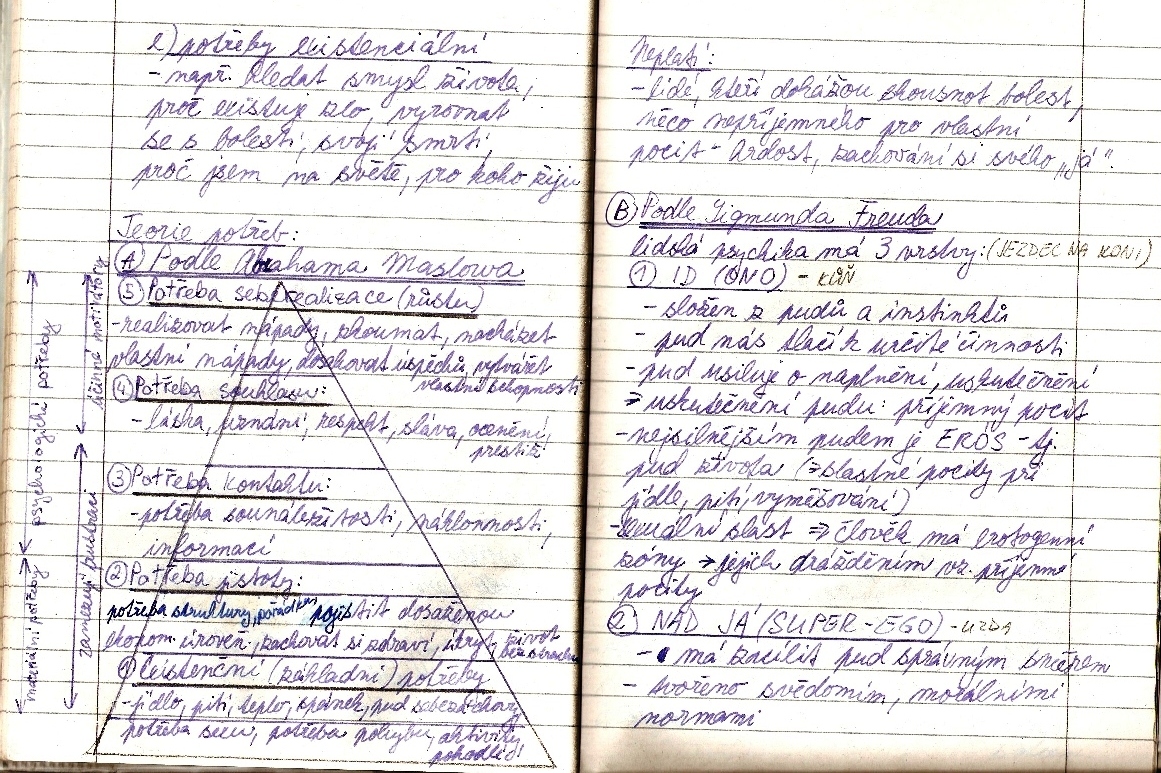 e) potřeby existenciální
- např. hledat smysl života,
proč existuje zlo, vyrovnat
se s bolestí, svojí smrtí,
proč jsem na světě, pro koho žiju
Teorie potřeb:
(A) Podle Abrahama Maslowa
(5) Potřeba seberealizace (růstu)
- realizovat nápady, zkoumat, nacházet
vlastní nápady, dosahovat úspěchů, vytvářet
vlastní schopnosti
(4) Potřeba souhlasu:
- láska, uznání, respekt, sláva, ocenění,
prestiž
(3) Potřeba kontaktu:
- potřeba sounáležitosti, náklonnosti,
informací
(2) Potřeba jistoty:
potřeba struktury, pořádku, pojistit dosaženou
ekonom. úroveň, zachovat si zdraví, život
beze strachu
(1) Existenční (základní) potřeby
- jídlo, pití, teplo, spánek, pud sebezáchovy
potřeba sexu, potřeba pohybu, aktivity
pohodlí
psychologické potřeby
materiální potřeby
účinné motivátory
zamezují frustraci
Neplatí:
- lidé, kteří dokážou zkousnot bolest,
něco nepříjemného pro vlastní
pocit - hrdost, zachování si svého „já“.
(B) Podle Sigmunda Freuda
lidská psychika má 3 vrstvy: (JEZDEC NA KONI)
(1) ID (ONO) - KŮŇ
- složen z pudů a instinktů
- pud nás tlačí k určité činnosti
- pud usiluje o naplnění, uskutečnění
⇒ uskutečnění pudu: příjemný pocit
- nejsilnějším pudem je EROS - tj.
pud života (⇒ slastné pocity při
jídle, pití, vyměšování)
- sexuální slast ⇒ člověk má erotogenní
zóny → jejich drážděním vz. příjemné
pocity
(2) NAD JÁ (SUPER-EGO) - UZDA
- má zacílit pud správným směrem
- tvořeno svědomím, morálními
normami